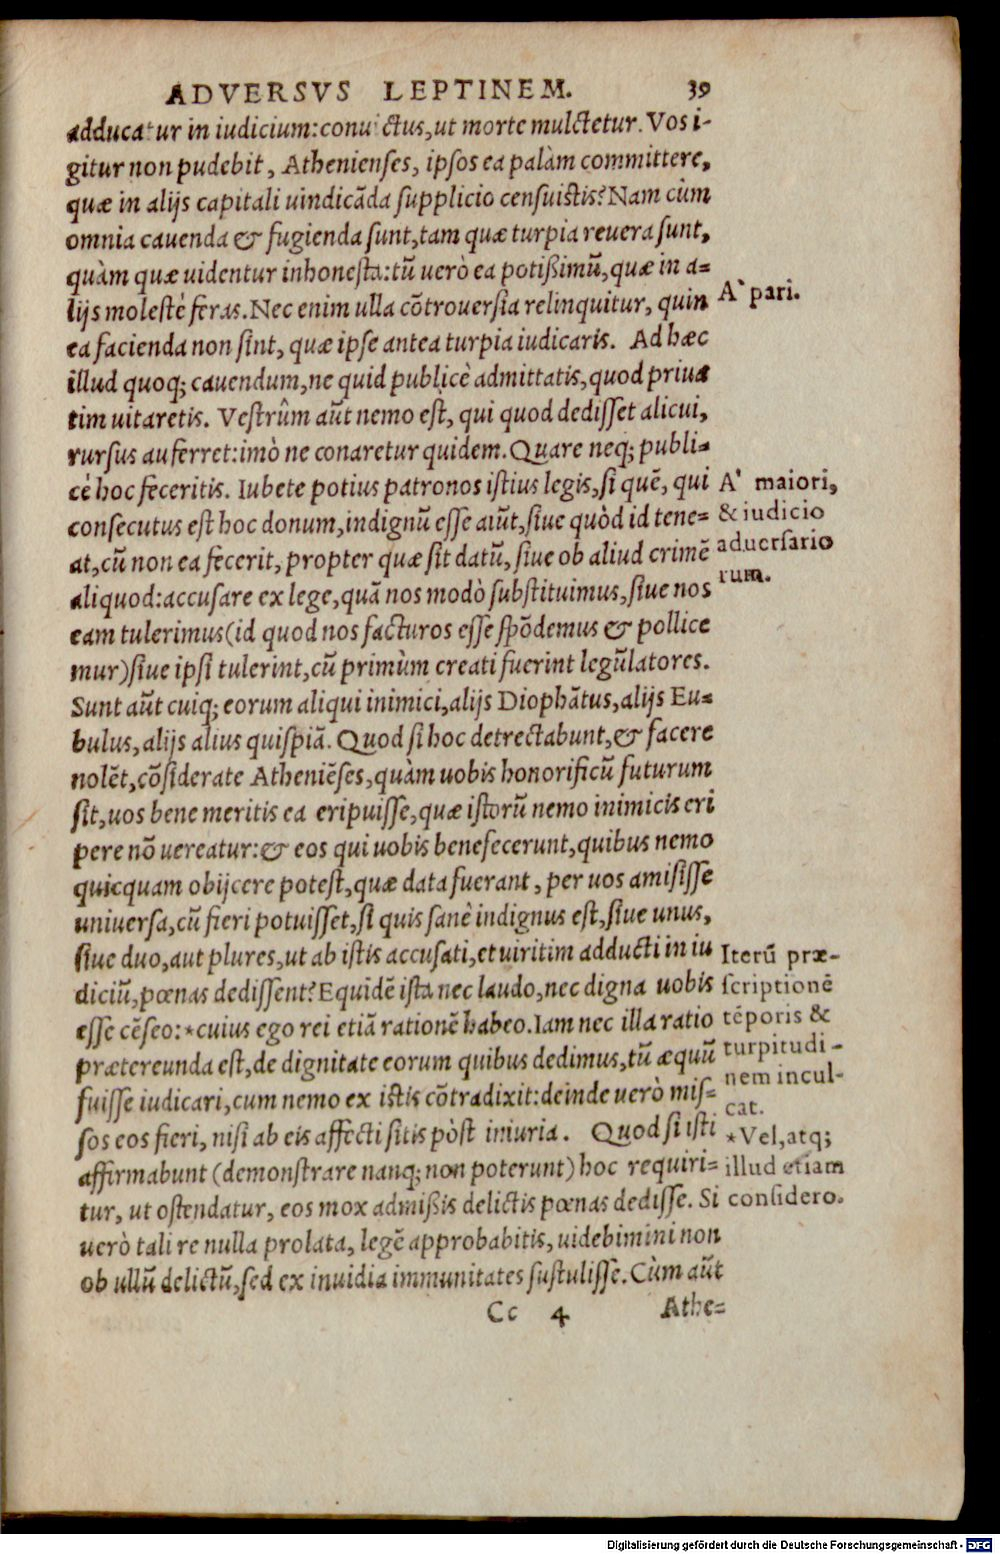 ADVERSVS LEPTINEM. 39
adducatur in iudicium: conuictus, ut morte mulctetur. Vos i-
gitur non pudebit, Athenienses, ipsos ea palàm committere,
quæ in alijs capitali uindicãda supplicio censuistis? Nam cùm
omnia cauenda & fugienda sunt, tam quæ turpia reuera sunt,
quàm quæ uidentur inhonesta: tũ uerò ea potißimũ, quæ in a=
lijs molestè feras. Nec enim ulla cõtrouersia relinquitur, quin
ea facienda non sint, quæ ipse antea turpia iudicaris. Ad hæc
illud quoq; cauendum, ne quid publicè admittatis, quod priua
tim uitaretis. Vestrûm aũt nemo est, qui quod dedisset alicui,
rursus auferret: imò ne conaretur quidem. Quare neq; publi=
cè hoc feceritis. Iubete potius patronos istius legis, si quẽ, qui
consecutus est hoc donum, indignũ esse aiũt, siue quòd id tene=
at, cũ non ea fecerit, propter quæ sit datũ, siue ob aliud crimẽ
aliquod: accusare ex lege, quã nos modò substituimus, siue nos
eam tulerimus (id quod nos facturos esse spõdemus & pollice
mur) siue ipsi tulerint, cũ primùm creati fuerint legũlatores.
Sunt aũt cuiq; eorum aliqui inimici, alijs Diophãtus, alijs Eu=
bulus, alijs alius quispiã. Quod si hoc detrectabunt, & facere
nolẽt, cõsiderate Atheniẽses, quàm uobis honorificũ futurum
sit, uos bene meritis ea eripuisse, quæ istorũ nemo inimicis eri
pere nõ uereatur: & eos qui uobis benefecerunt, quibus nemo
quicquam obijcere potest, quæ data fuerant, per uos amisisse
uniuersa, cũ fieri potuisset, si quis sanè indignus est, siue unus,
siue duo, aut plures, ut ab istis accusati, et uiritim adducti in iu
diciũ, pœnas dedissent? Equidẽ ista nec laudo, nec digna uobis
esse cẽseo: *cuius ego rei etiã rationẽ habeo. Iam nec illa ratio
prætereunda est, de dignitate eorum quibus dedimus, tũ æquũ
fuisse iudicari, cum nemo ex istis cõtradixit: deinde uerò mis=
sos eos fieri, nisi ab eis affecti sitis pòst iniuria. Quod si isti
affirmabunt (demonstrare nanq; non poterunt) hoc requiri=
tur, ut ostendatur, eos mox admißis delictis pœnas dedisse. Si
uerò tali re nulla prolata, legẽ approbabitis, uidebimini non
ob ullũ delictũ, sed ex inuidia immunitates sustulisse. Cùm aũt
Cc 4 Athe=
A` pari.
A` maiori,
& iudicio
aduersario
rum.
Iterũ præ-
scriptionẽ
tẽporis &
turpitudi-
nem incul-
cat.
*Vel, atq;
illud etiam
considero.
Digitalisierung gefördert durch die Deutsche Forschungsgemeinschaft - DFG